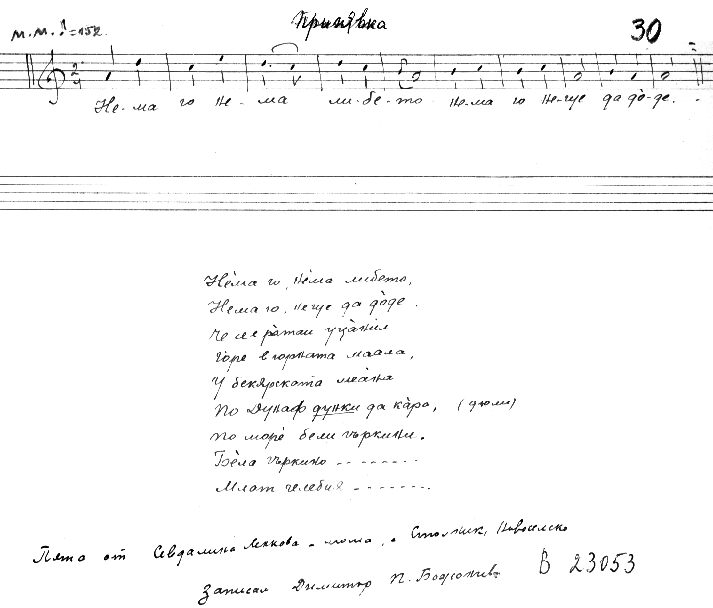 Припявка
30
М.М. ♩=152.
Не-ма го не-ма ли-бе-то не-ма го не-ще да до-де.
Нѐма го, нѐма либето,
Нема го, неще да до̀де.
Че се ра̀таи
го̀ре в горната маала,
У бекярската меа̀на
по Дунаф дунки да ка̀ра, (дюми)
по морѐ бели гъркини.
Бѐла гъркиньо --------
Млат челебия --------
Пята от Севдалина Ленкова - мома, с. Столник, Новоселско
Записал Димитър П.
В 23053